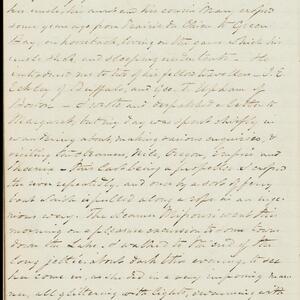 his uncle, his aunt and his cousin Mary crossed
some years ago from Prairie du Chien to Green
Bay, on horseback, living on the game which his
uncle shot and sleeping under tents. He
introduced me to two of his fellow travellers
of Buffalo, and Geo. T. Upham of
Boston. I wrote and despatched a letter to
Margaret, but my day was spent chiefly in
wandering about, making various enquiries, &
visiting the steamers, Nile, Oregon, Empire and
Phoenix – this last being a propeller. I crossed
the river repeatedly, and once by a sort of ferry
boat which is pulled along a rope in an inge-
nious way. The steamer went this
morning on a pleasure excursion to some town
down the Lake. I walked to the end of the
long jettie about dark this evening, to see
her come in, as she did in a very imposing man-
ner, all glittering with lights, swarming with